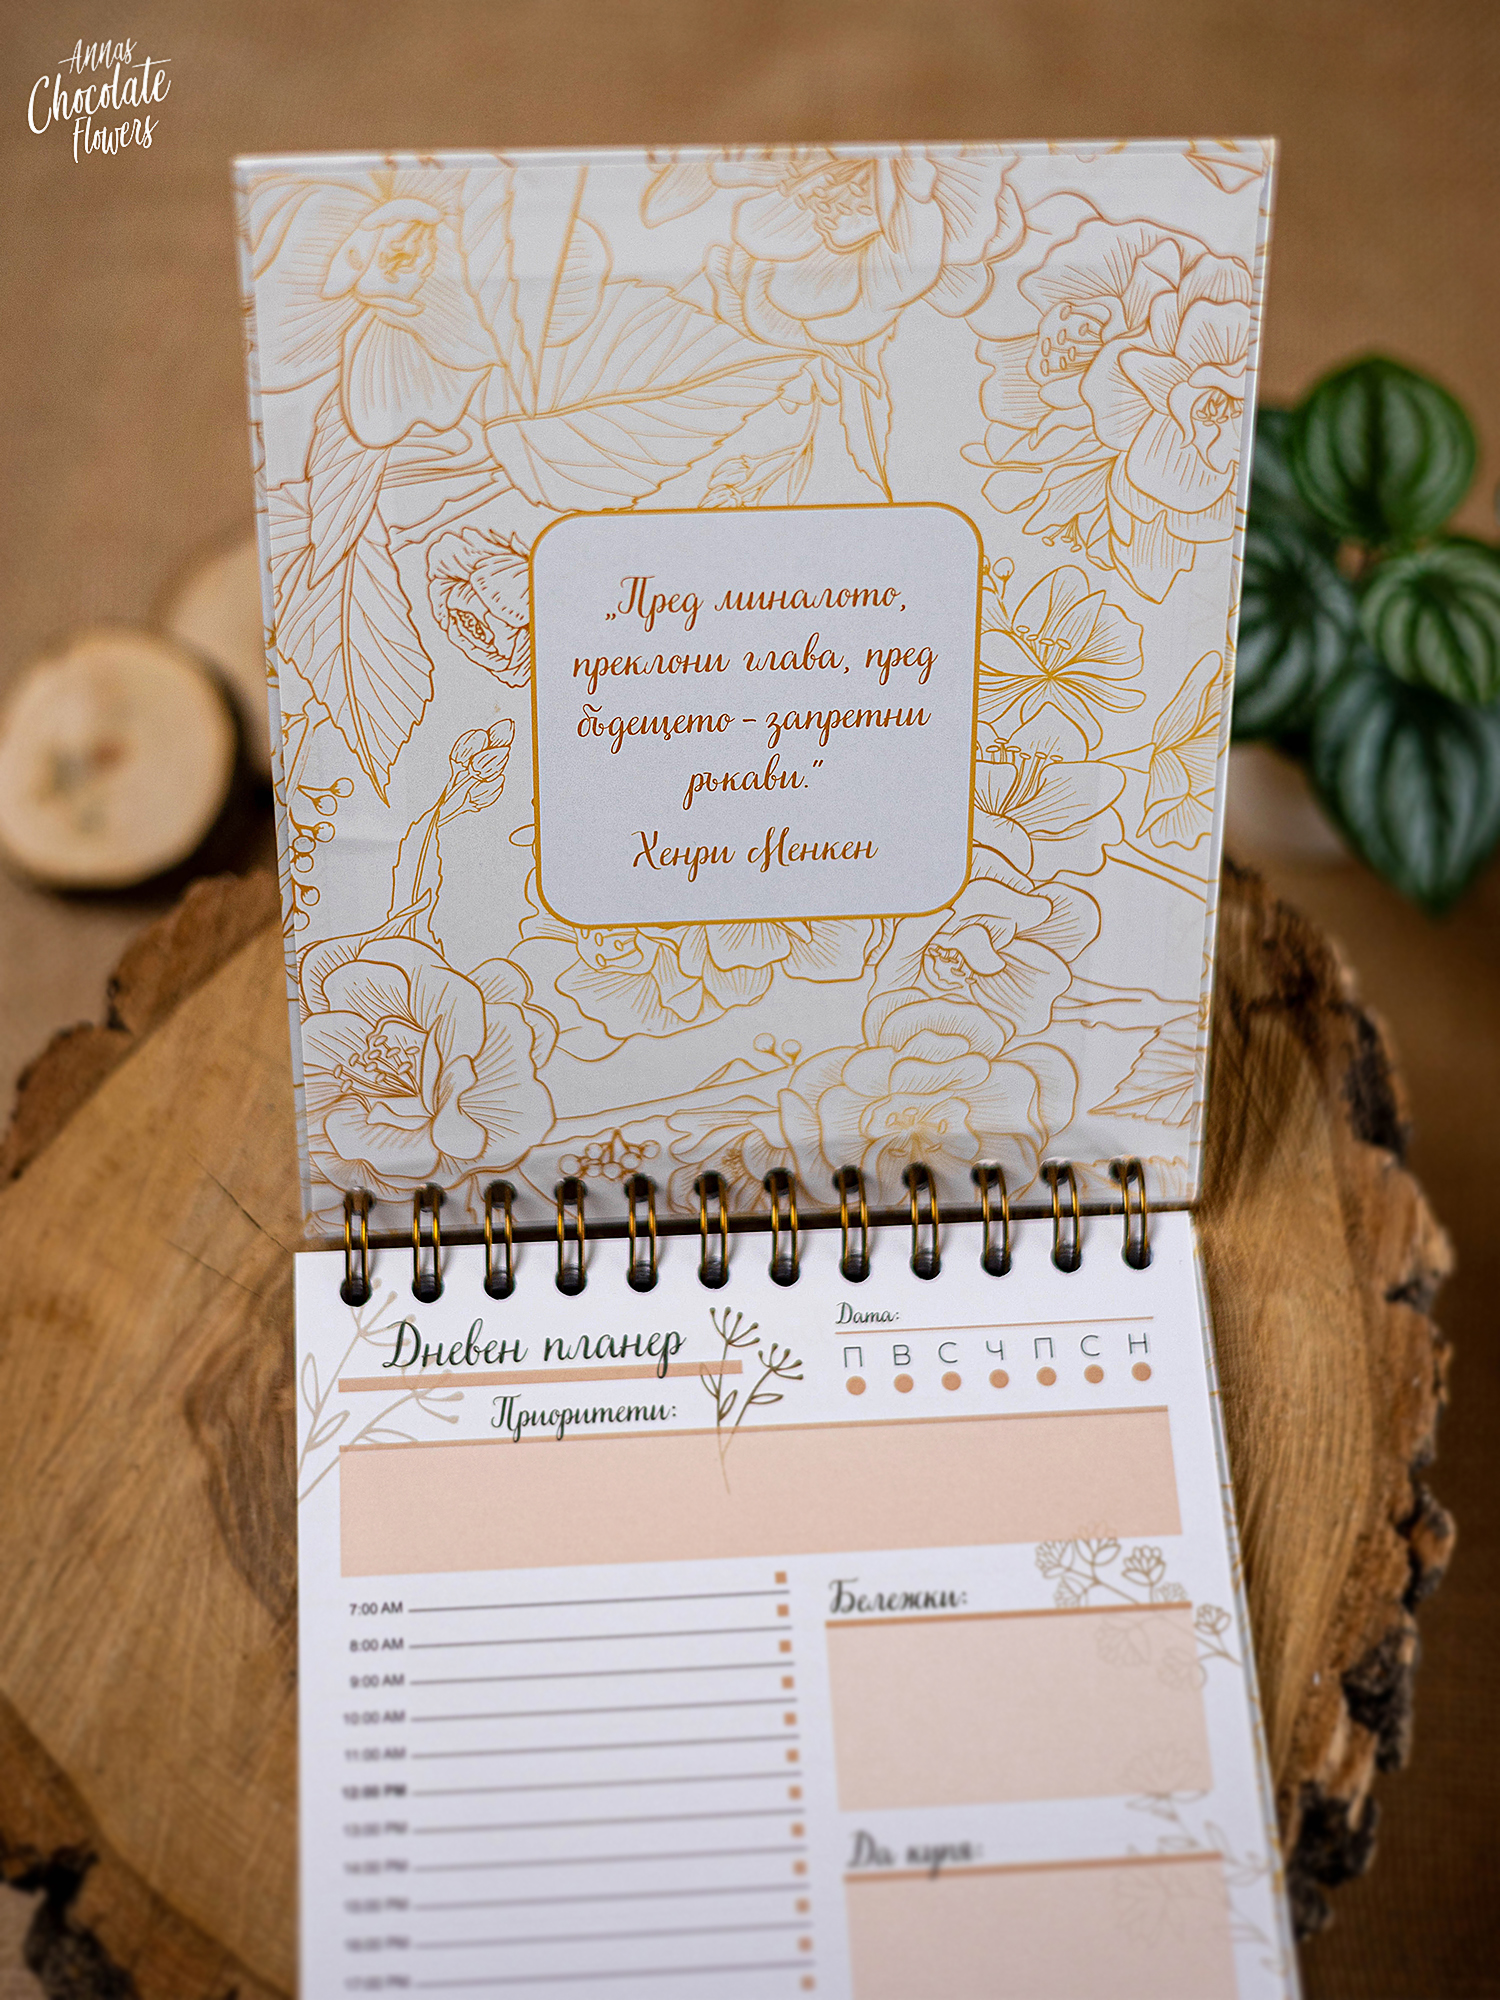 Annas
Chocolate
Flowers
„Пред миналото,
преклони глава, пред
бъдещето – запретни
ръкави.“
Хенри Менкен
Дневен планер
Дата:
П В С Ч П С Н
Приоритети:
7:00 AM
8:00 AM
9:00 AM
10:00 AM
11:00 AM
12:00 PM
13:00 PM
14:00 PM
15:00 PM
16:00 PM
17:00 PM
Бележки:
Да купя: